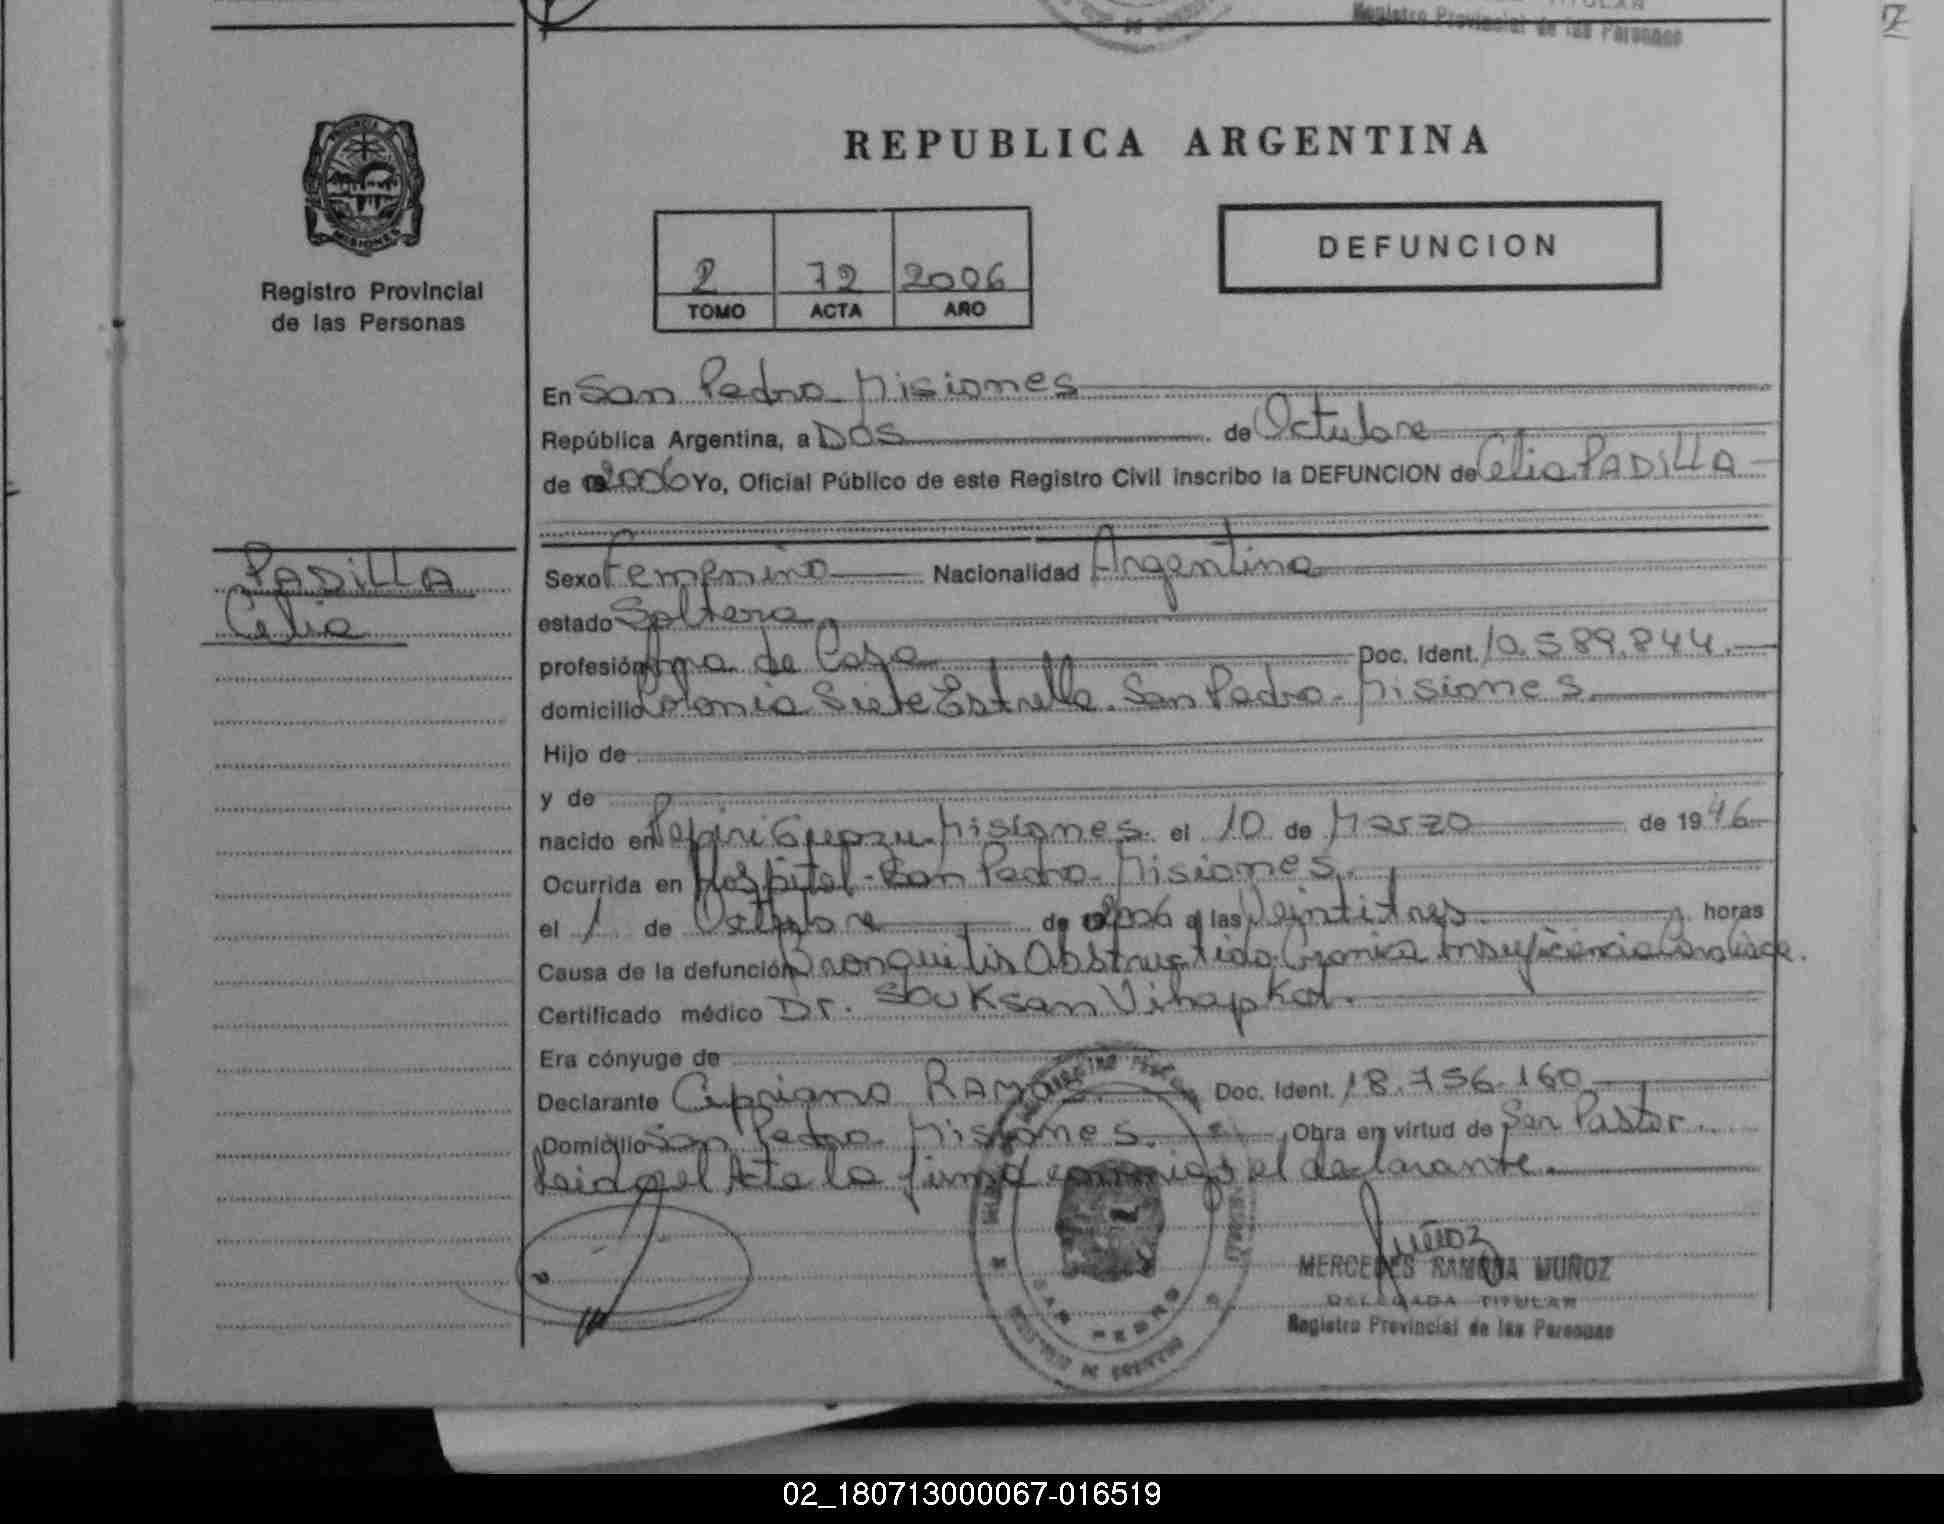 Registro Provincial de las Personas
PROVINCIA DE
MISIONES
Registro Provincial
de las Personas
REPUBLICA ARGENTINA
2 72 2006
TOMO ACTA AÑO
DEFUNCION
En San Pedro - Misiones
República Argentina, a Dos de Octubre
de 2006 Yo, Oficial Público de este Registro Civil inscribo la DEFUNCION de Celia PADILLA
PADILLA
Celia
Sexo Femenino Nacionalidad Argentina
estado Soltera
profesión Ama de Casa Doc. Ident. 10.589.844.
domicilio Colonia Siete Estrella. San Pedro - Misiones
Hijo de
y de
nacido en Pepiri Guazu - Misiones. el 10 de Marzo de 1946
Ocurrida en Hospital - San Pedro - Misiones.
el 1 de Octubre de 2006 a las Veintitres horas
Causa de la defunción Bronquitis Obstructida Cronica Insuficiencia Cardiaca.
Certificado médico Dr. Souksan Vihapkot.
Era cónyuge de
Declarante Cipriano RAMOS Doc. Ident. 18.756.160
Domicilio San Pedro - Misiones. Obra en virtud de Ser Pastor.
Leida el Acta la firma conmigo el declarante.
Muñoz
MERCEDES RAMONA MUÑOZ
DELEGADA TITULAR
Registro Provincial de las Personas
SAN PEDRO
02_180713000067-016519